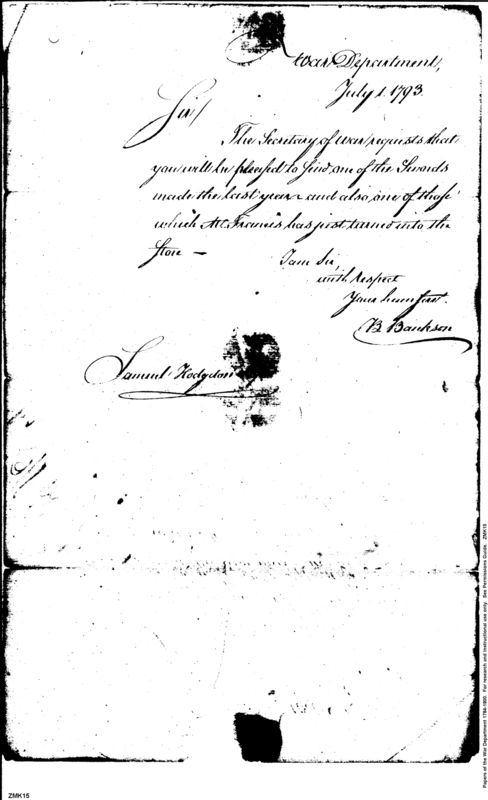 War Department,
July 1. 1793.
Sir,
The Secretary of War requests that
you will be pleased to send one of the Swords
made the last year and also one of those
which Mr. Francis has just turned into the
Store —
I am Sir,
with respect
Your hum. servt.
B. Bankson
Samuel Hodgdon
ZMK15
Papers of the War Department 1784-1800. For research and instructional use only. See Permissions Guide. ZMK15